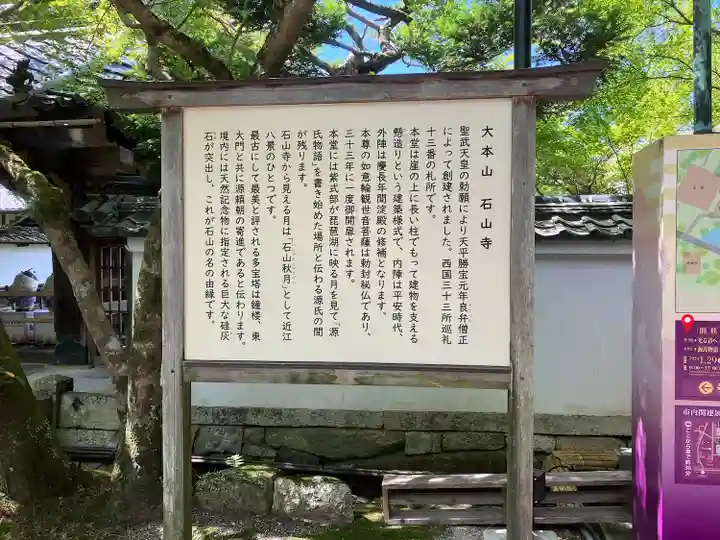 大本山 石山寺
聖武天皇の勅願により天平勝宝元年良弁僧正
によって創建されました。西国三十三所巡礼
十三番の札所です。
本堂は崖の上に長い柱でもって建物を支える
懸造りという建築様式で、内陣は平安時代、
外陣は慶長年間淀殿の修補となります。
本尊の如意輪観世音菩薩は勅封秘仏であり、
三十三年に一度御開扉されます。
本堂には紫式部が琵琶湖に映る月を見て「源
氏物語」を書き始めた場所と伝わる源氏の間
が残ります。
石山寺から見える月は「石山秋月」として近江
八景のひとつです。
最古にして最美と評される多宝塔は鐘楼、東
大門と共に源頼朝の寄進であると伝わります。
境内には天然記念物に指定される巨大な硅灰
石が突出し、これが石山の名の由縁です。
市内関連展